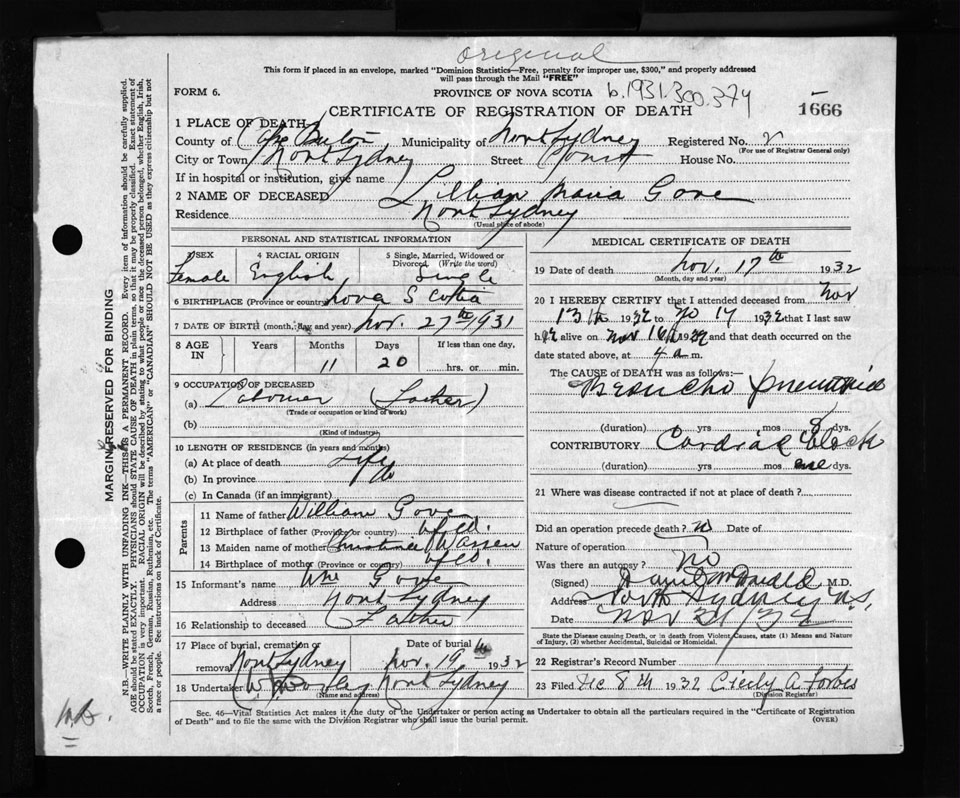 original
This form if placed in an envelope, marked "Dominion Statistics—Free, penalty for improper use, $300," and properly addressed
will pass through the Mail "FREE"
FORM 6. PROVINCE OF NOVA SCOTIA b.1931.300.374
CERTIFICATE OF REGISTRATION OF DEATH 1666
1 PLACE OF DEATH
County of Cape Breton Municipality of North Sydney Registered No.
(For use of Registrar General only)
City or Town North Sydney Street Court House No.
If in hospital or institution, give name
2 NAME OF DECEASED Lillian Maria Gove
Residence North Sydney
(Usual place of abode)
PERSONAL AND STATISTICAL INFORMATION
3 SEX 4 RACIAL ORIGIN 5 Single, Married, Widowed or Divorced (Write the word)
Female English Single
6 BIRTHPLACE (Province or country) Nova Scotia
7 DATE OF BIRTH (month, day and year) Nov. 27th 1931
8 AGE IN Years Months Days If less than one day,
11 20 hrs. or min.
9 OCCUPATION OF DECEASED
(a) Labourer (Father)
(Trade or occupation or kind of work)
(b)
(Kind of industry)
10 LENGTH OF RESIDENCE (in years and months)
(a) At place of death Life
(b) In province do
(c) In Canada (if an immigrant)
Parents
11 Name of father William Gove
12 Birthplace of father (Province or country) Nfld.
13 Maiden name of mother Christinee Warren
14 Birthplace of mother (Province or country) Nfld.
15 Informant's name Wm Gove
Address North Sydney
16 Relationship to deceased Father
17 Place of burial, cremation or removal North Sydney Date of burial Nov. 19th 1932
18 Undertaker North Sydney
(Name and address)
MEDICAL CERTIFICATE OF DEATH
19 Date of death Nov. 17th 1932
(Month, day and year)
20 I HEREBY CERTIFY that I attended deceased from Nov
13th 1932 to 17 1932 that I last saw
alive on Nov 16th 1932 and that death occurred on the
date stated above, at 4 a m.
The CAUSE OF DEATH was as follows:—
Broncho pneumonia
(duration) yrs mos 8 dys.
CONTRIBUTORY Cardiac block
(duration) yrs mos one dys.
21 Where was disease contracted if not at place of death?
Did an operation precede death? no Date of
Nature of operation
Was there an autopsy? No
(Signed) M.D.
Address North Sydney N.S.
Date Nov
State the Disease causing Death, or in death from Violent Causes, state (1) Means and Nature of Injury, (2) whether Accidental, Suicidal or Homicidal.
22 Registrar's Record Number
23 Filed Dec 8th 1932 Cecily A. Forbes
(Division Registrar)
Sec. 46—Vital Statistics Act makes it the duty of the Undertaker or person acting as Undertaker to obtain all the particulars required in the "Certificate of Registration
of Death" and to file the same with the Division Registrar who shall issue the burial permit. (OVER)
MARGIN RESERVED FOR BINDING
N.B.—WRITE PLAINLY WITH UNFADING INK—THIS IS A PERMANENT RECORD. Every item of information should be carefully supplied.
AGE should be stated EXACTLY. PHYSICIANS should STATE CAUSE OF DEATH in plain terms, so that it may be properly classified. Exact statement of
OCCUPATION is very important. RACIAL ORIGIN will be described by stating to what people or race the deceased person belonged, whether English, Irish,
Scotch, French, German, Russian, Ruthenian, etc. The terms "AMERICAN" or "CANADIAN" SHOULD NOT BE USED as they express citizenship but not
a race or people. See instructions on back of Certificate.
N.B.